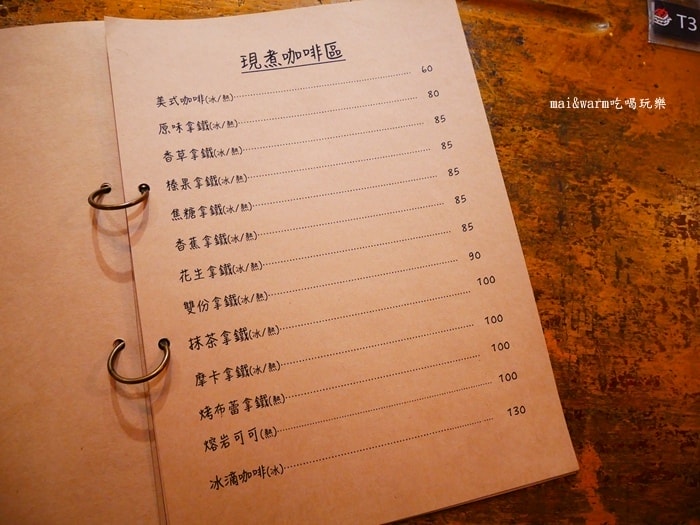 現煮咖啡區
美式咖啡(冰/熱) 60
原味拿鐵(冰/熱) 80
香草拿鐵(冰/熱) 85
榛果拿鐵(冰/熱) 85
焦糖拿鐵(冰/熱) 85
香蕉拿鐵(冰/熱) 85
花生拿鐵(冰/熱) 85
雙份拿鐵(冰/熱) 90
抹茶拿鐵(冰/熱) 100
摩卡拿鐵(冰/熱) 100
烤布蕾拿鐵(熱) 100
熔岩可可(熱) 100
冰滴咖啡(冰) 130
T3
mai&warm吃喝玩樂